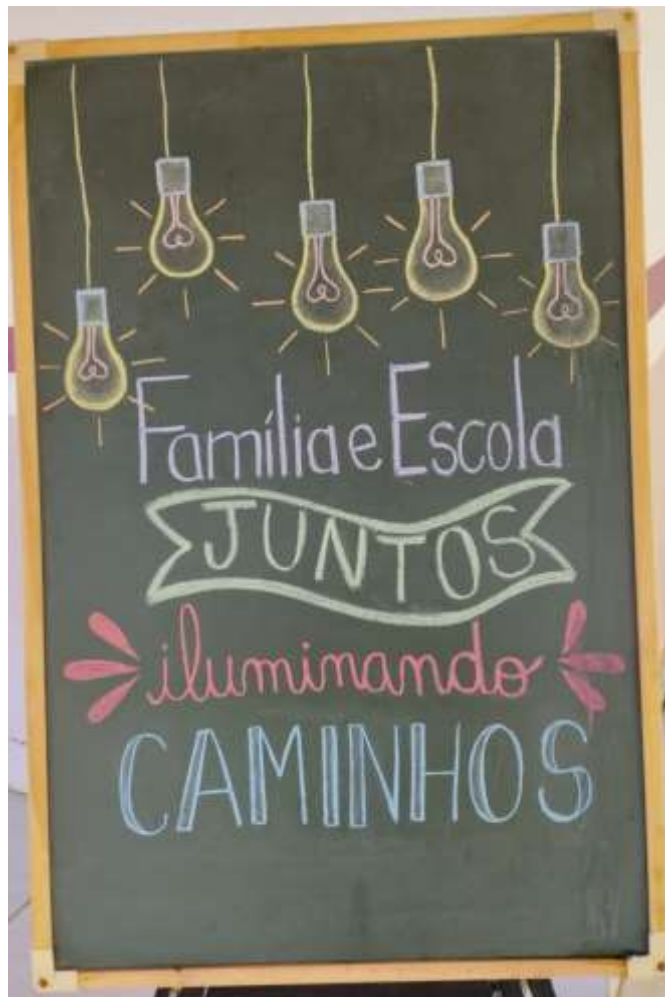 Família e Escola
JUNTOS
iluminando
CAMINHOS